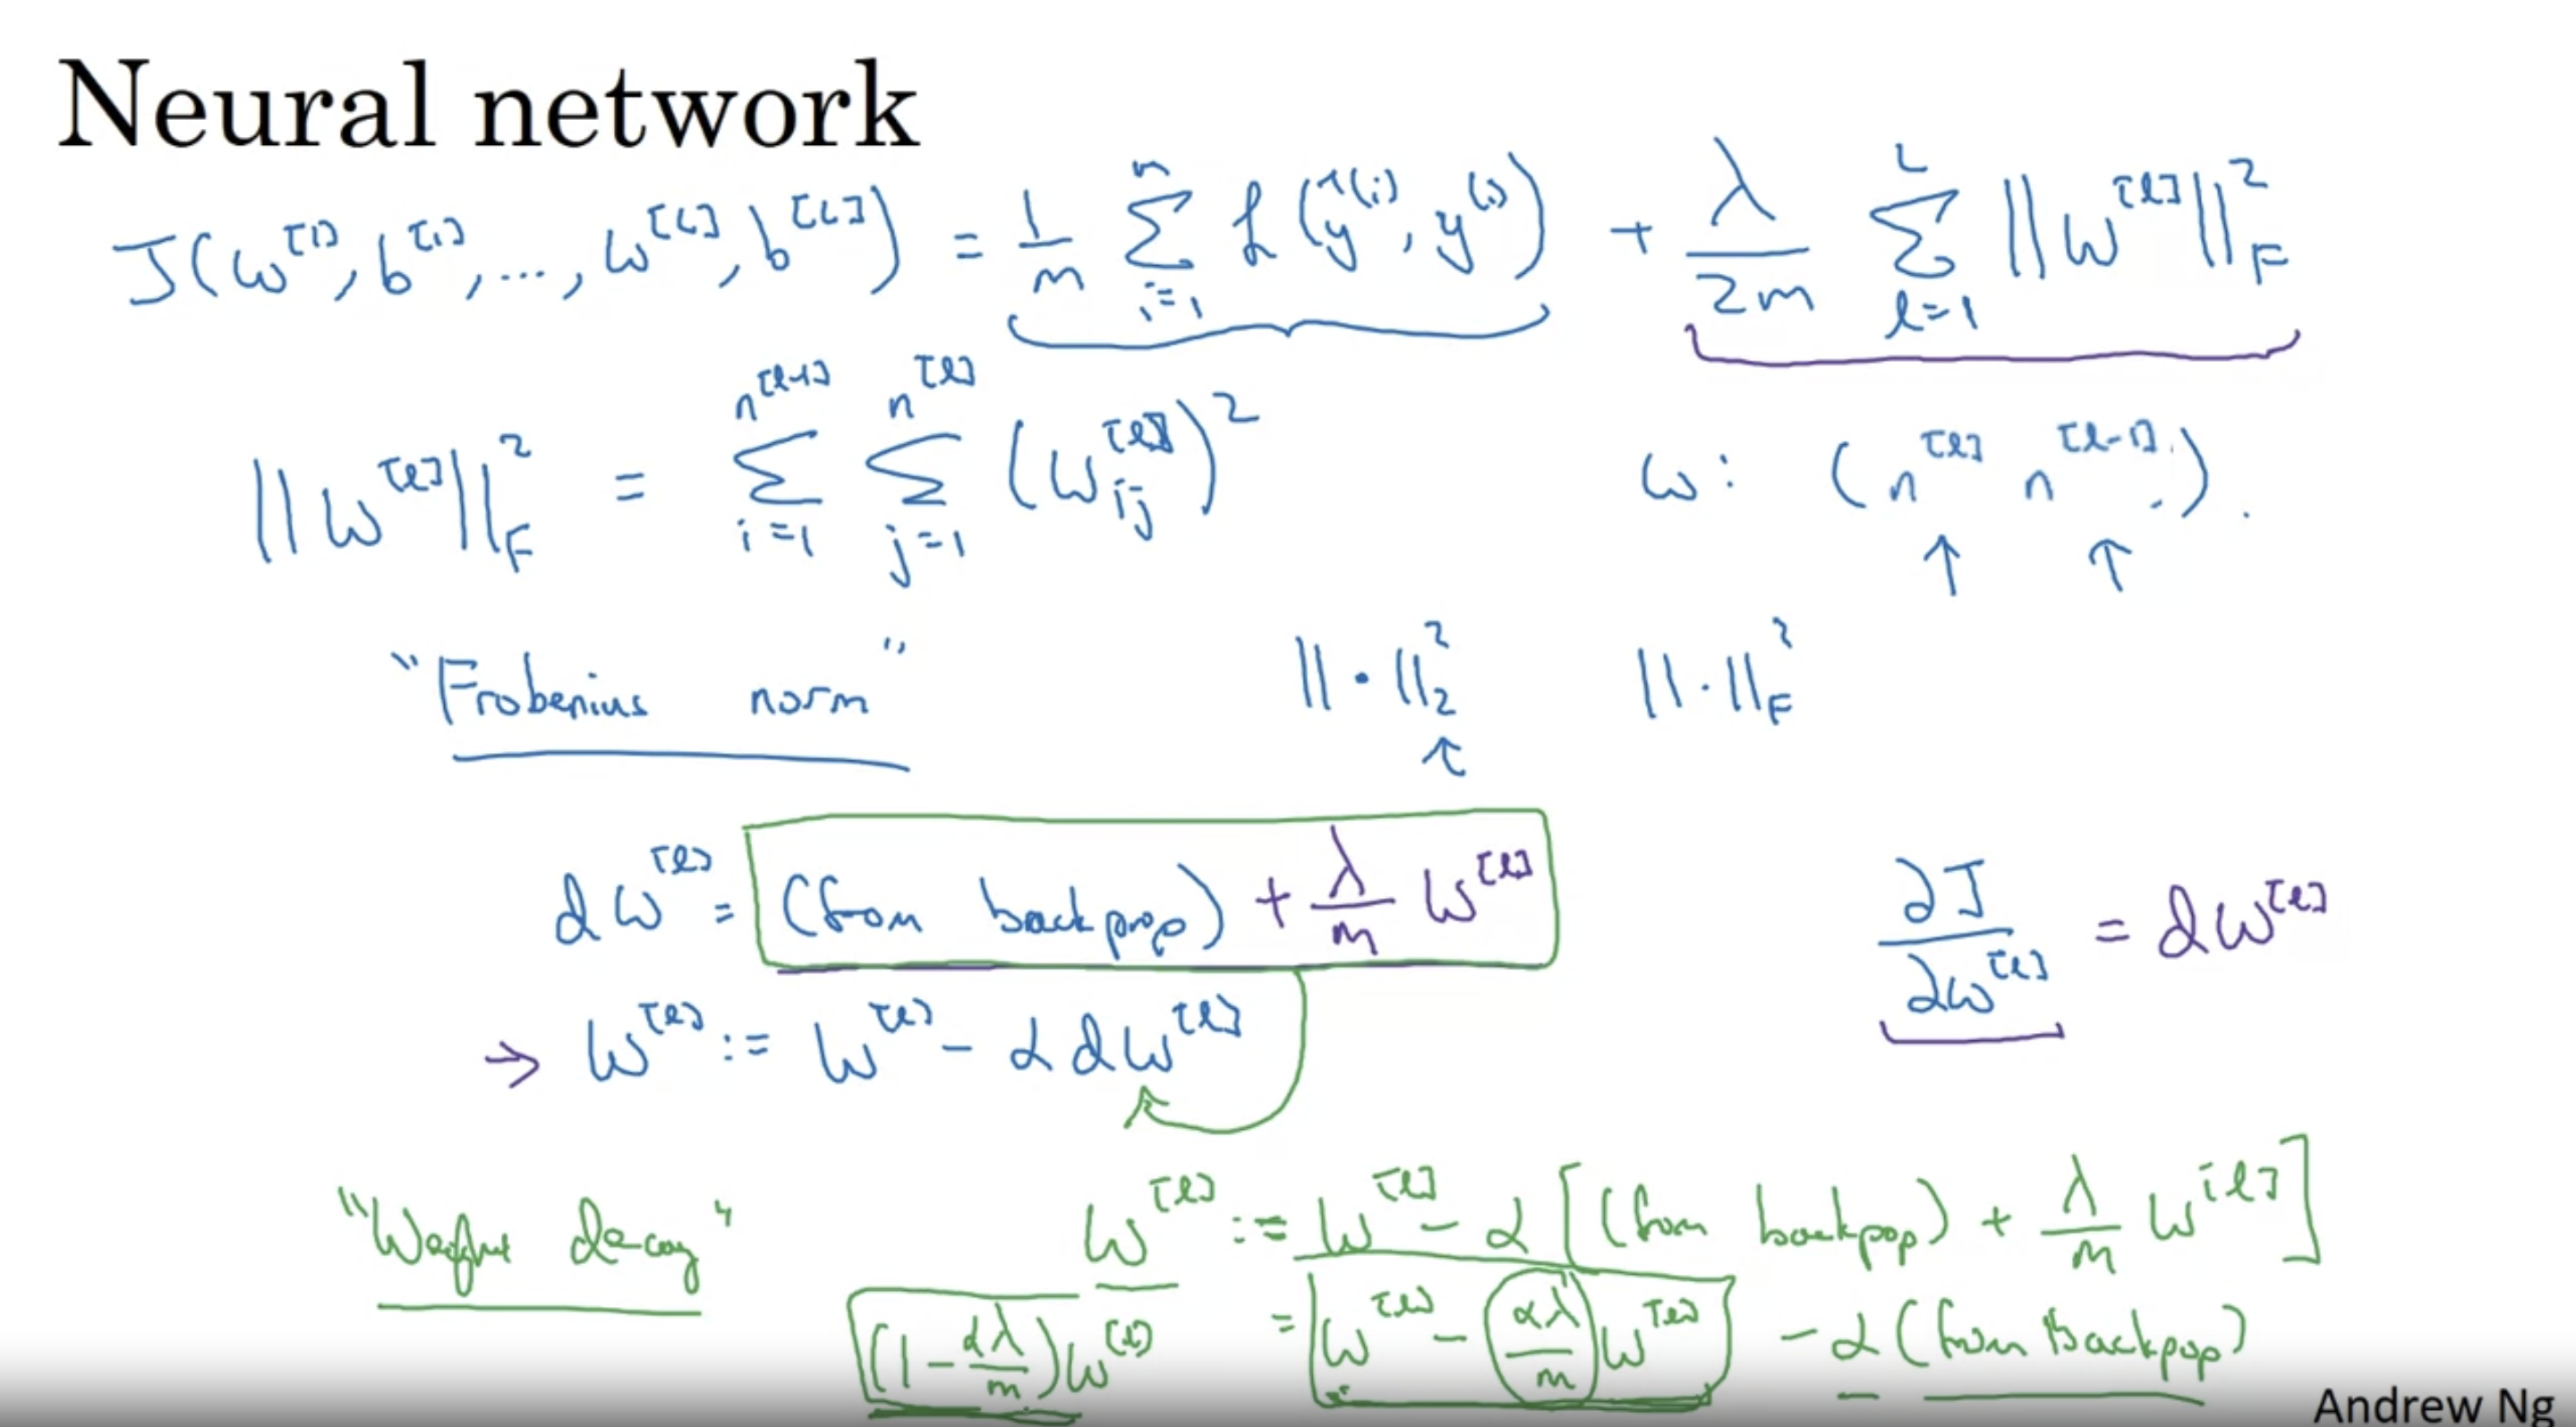 Neural network
J(w^[1], b^[1], ..., w^[L], b^[L]) = 1/m Σ_{i=1}^{m} ℒ(ŷ^(i), y^(i)) + λ/2m Σ_{l=1}^{L} ||w^[l]||_F^2
||w^[l]||_F^2 = Σ_{i=1}^{n^[l-1]} Σ_{j=1}^{n^[l]} (w_ij^[l])^2 w: (n^[l] n^[l-1]).
"Frobenius norm" ||·||_2^2 ||·||_F^2
↑
dw^[l] = (from backprop) + λ/m w^[l] ∂J/∂w^[l] = dw^[l]
→ w^[l] := w^[l] - α dw^[l]
"Weight decay" w^[l] := w^[l] - α [(from backprop) + λ/m w^[l]]
(1 - αλ/m) w^[l] = w^[l] - αλ/m w^[l] - α (from backprop)
Andrew Ng